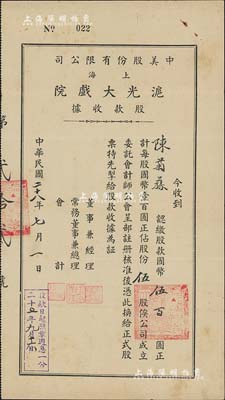 No 022
中美股份有限公司
上海
滬光大戲院
股款收據
今收到
陳菊 認繳股款國幣伍百圓正
計每股國幣壹百圓正佔股份伍股俟公司成立
委託會計師公會呈部註冊核准後憑此換給正式股
票特先掣給股款收據為証
董事兼經理
常務董事兼總理
會計
中華民國二十八年七月一日
第 號